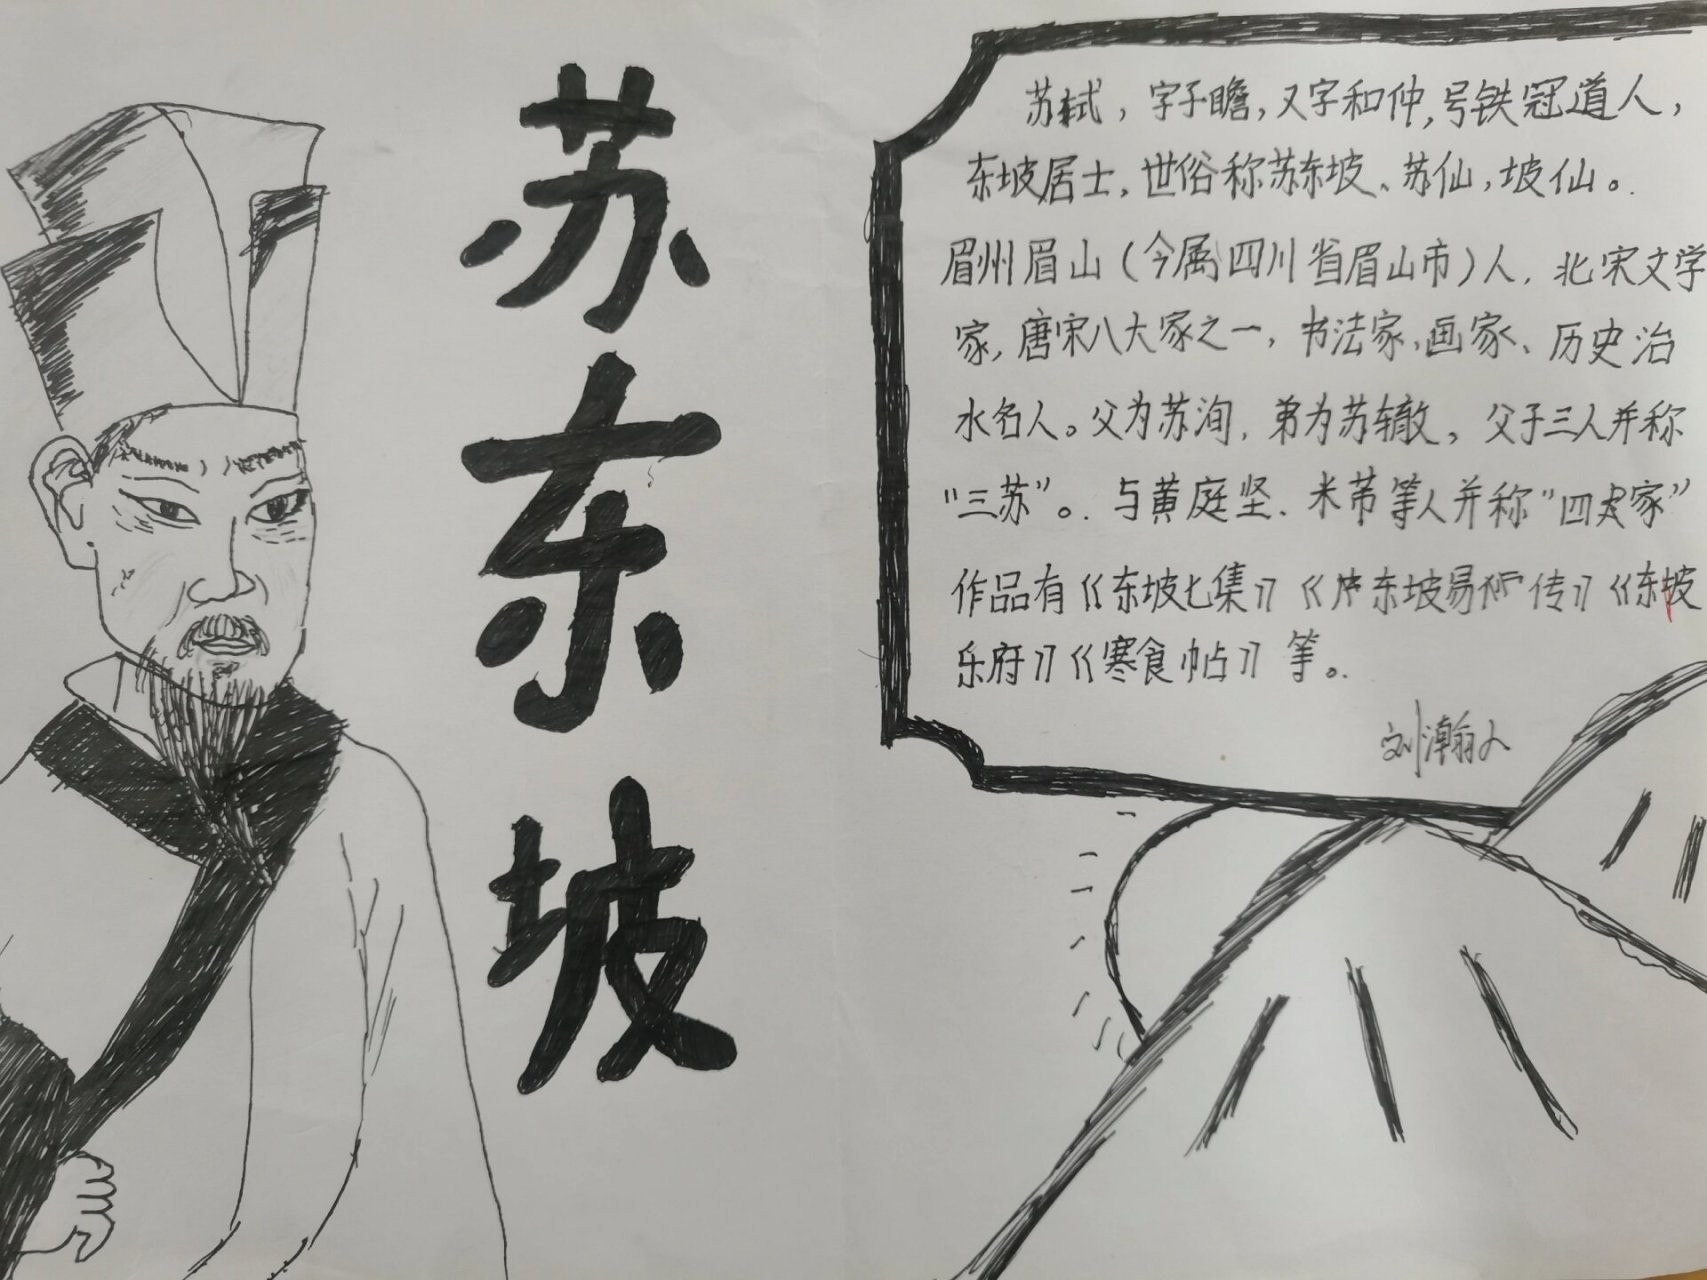 苏东坡
苏轼，字子瞻，又字和仲，号铁冠道人，
东坡居士，世俗称苏东坡、苏仙，坡仙。
眉州眉山（今属四川省眉山市）人，北宋文学
家，唐宋八大家之一，书法家，画家、历史治
水名人。父为苏洵，弟为苏辙，父子三人并称
“三苏”。与黄庭坚、米芾等人并称“四家”
作品有《东坡七集》《东坡易传》《东坡
乐府》《寒食帖》等。
刘瀚